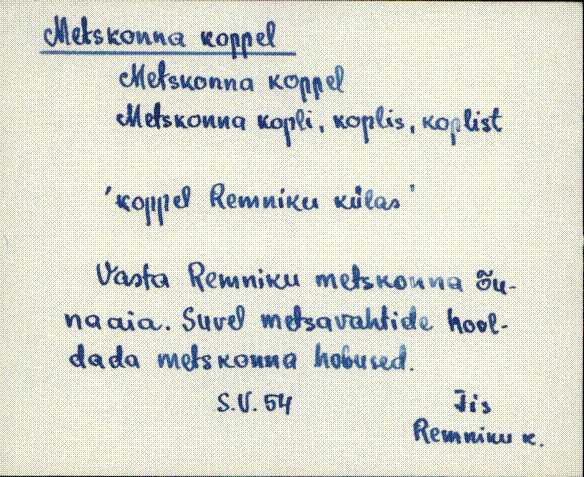 Metskonna koppel
Metskonna koppel
Metskonna kopli, koplis, koplist
'koppel Remniku külas'
Vasta Remniku metskonna õu-
naaia. Suvel metsavahtide hool-
dada metskonna hobused.
S.V. 54
Jis
Remniku k.